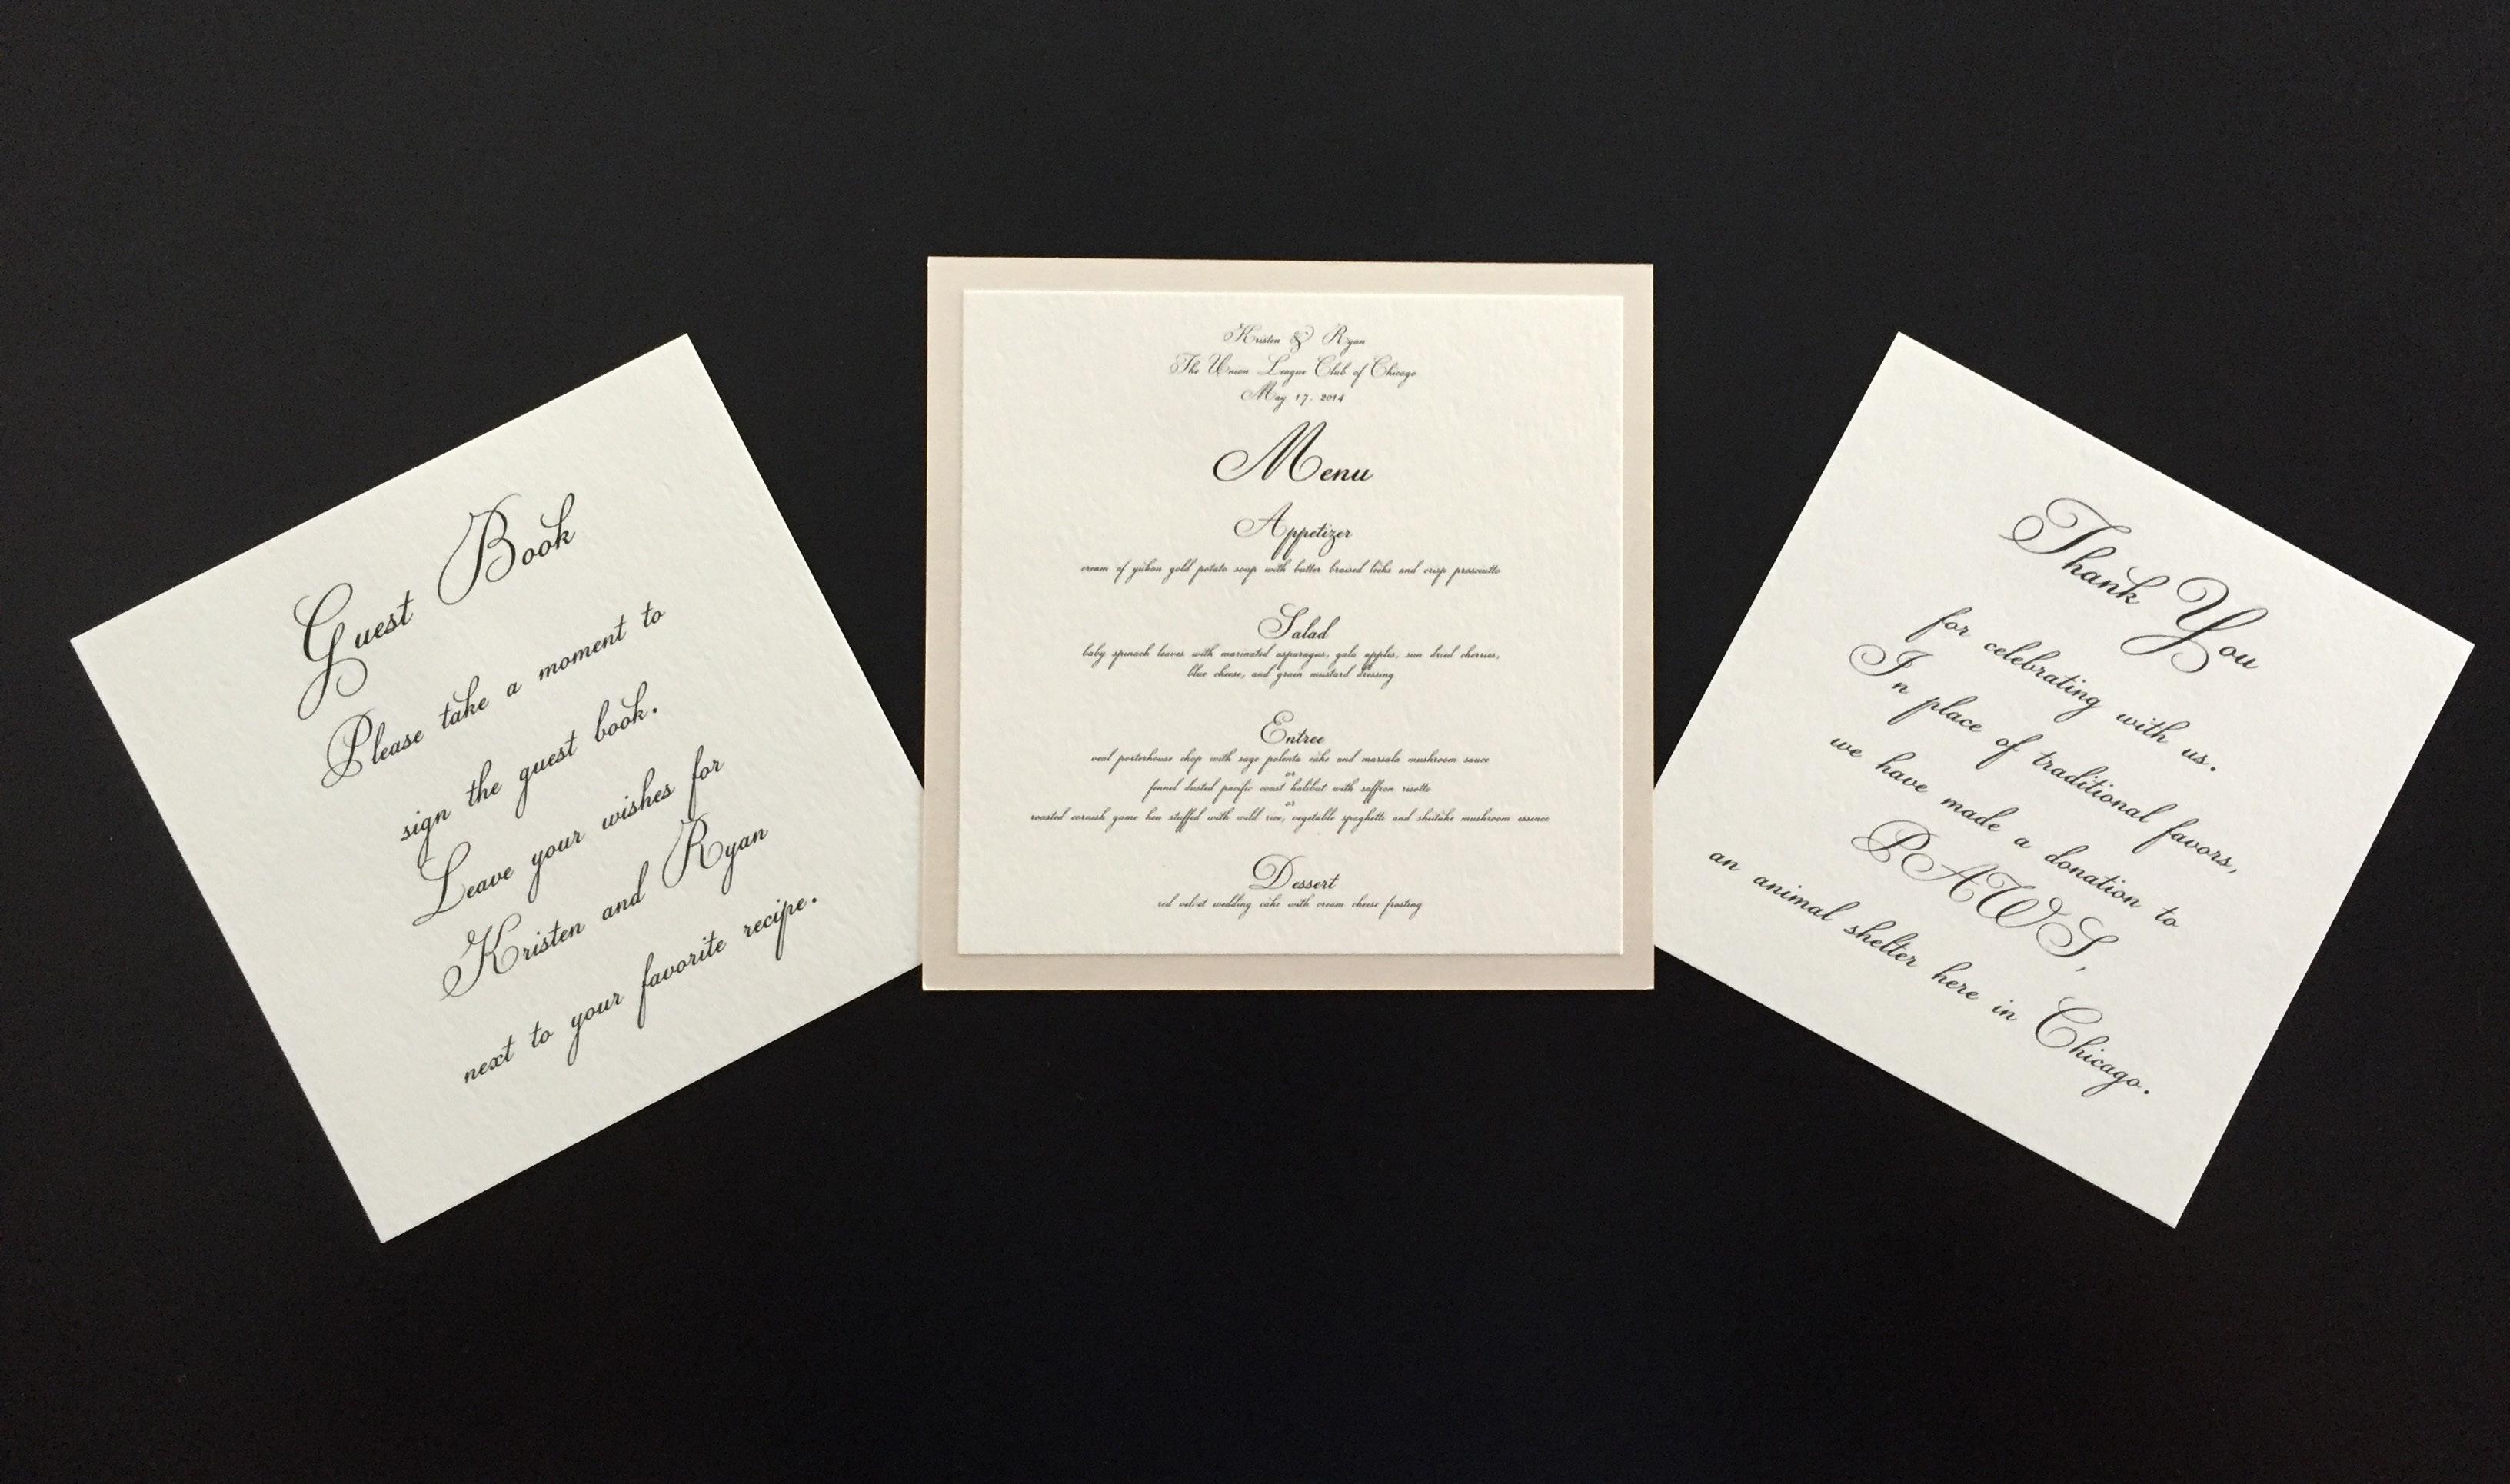 Guest Book
Please take a moment to
sign the guest book.
Leave your wishes for
Kristen and Ryan
next to your favorite recipe.
Kristen & Ryan
The Union League Club of Chicago
May 17, 2014
Menu
Appetizer
cream of yukon gold potato soup with butter braised leeks and crisp prosciutto
Salad
baby spinach leaves with marinated asparagus, gala apples, sun dried cherries,
blue cheese, and grain mustard dressing
Entree
veal porterhouse chop with sage polenta cake and marsala mushroom sauce
or
fennel dusted pacific coast halibut with saffron risotto
or
roasted cornish game hen stuffed with wild rice, vegetable spaghetti and shiitake mushroom essence
Dessert
red velvet wedding cake with cream cheese frosting
Thank You
for celebrating with us.
In place of traditional favors,
we have made a donation to
PAWS,
an animal shelter here in Chicago.